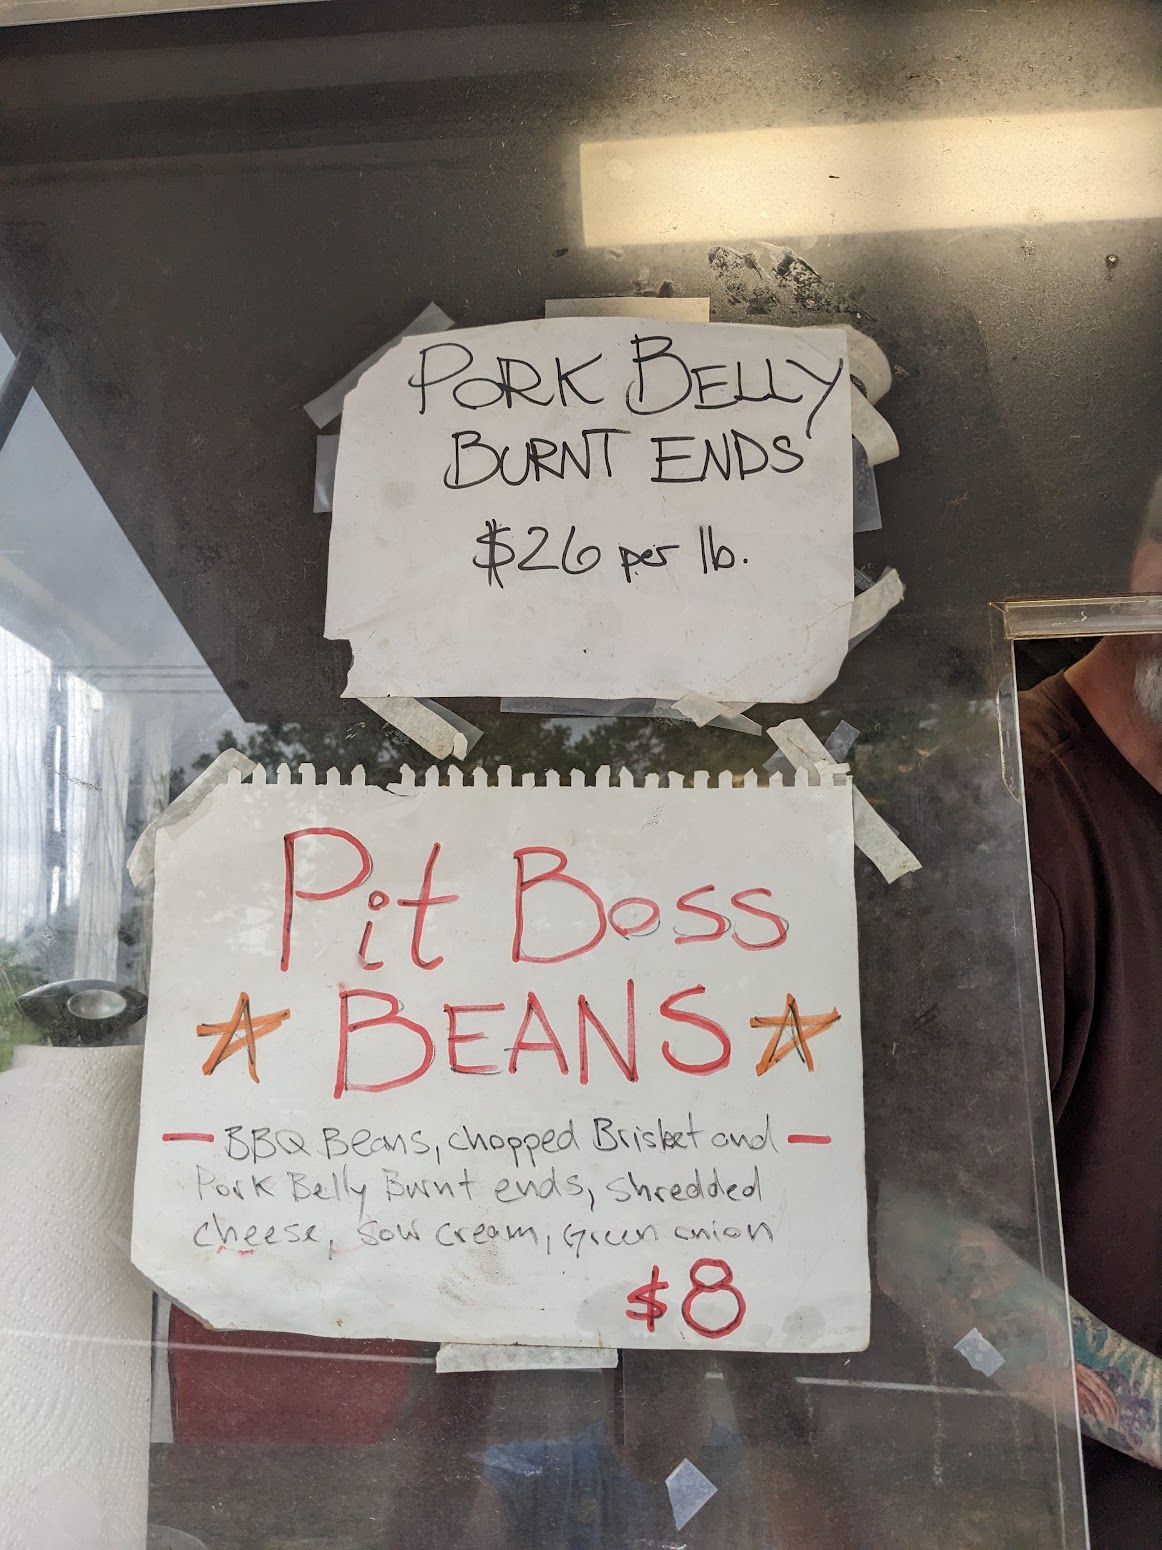 PORK BELLY
BURNT ENDS
$26 per lb.
Pit Boss
BEANS
BBQ Beans, chopped Brisket and
Pork Belly Burnt ends, shredded
cheese, Sour cream, Green onion
$8